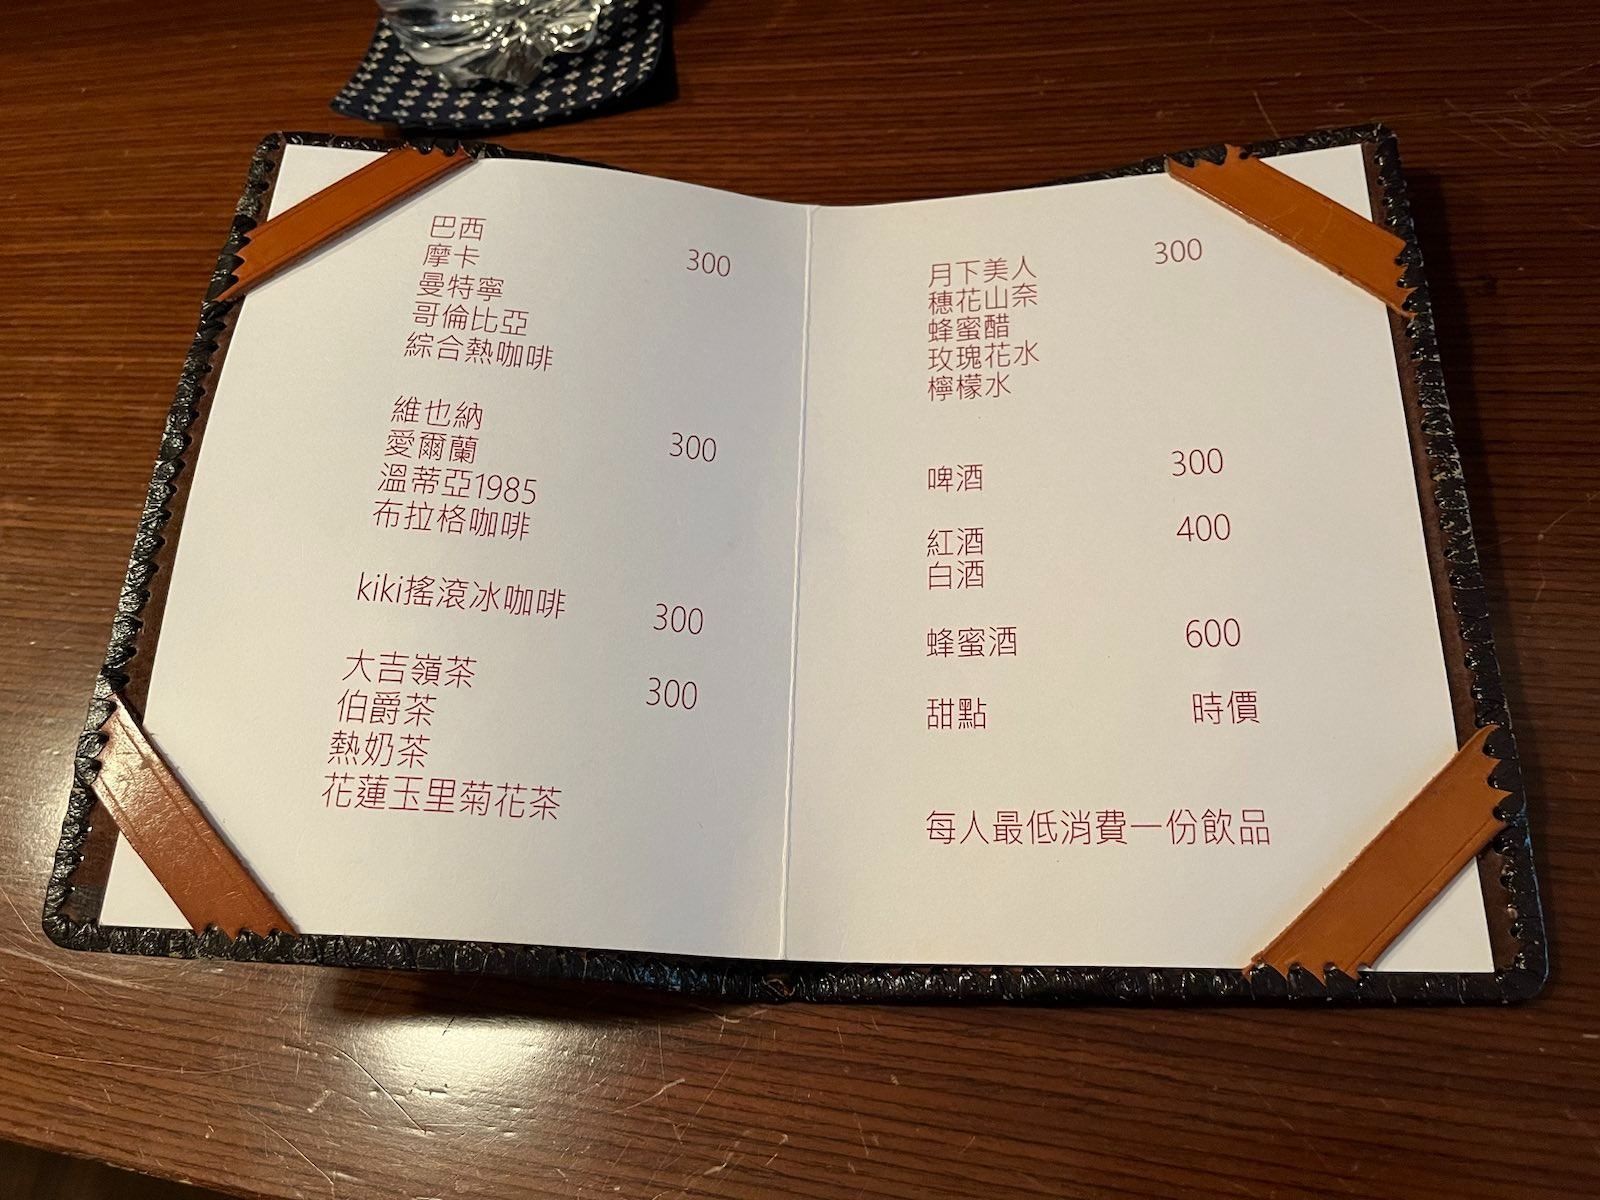 巴西
摩卡 300
曼特寧
哥倫比亞
綜合熱咖啡
維也納
愛爾蘭 300
溫蒂亞1985
布拉格咖啡
kiki搖滾冰咖啡 300
大吉嶺茶
伯爵茶 300
熱奶茶
花蓮玉里菊花茶
月下美人 300
穗花山奈
蜂蜜醋
玫瑰花水
檸檬水
啤酒 300
紅酒 400
白酒
蜂蜜酒 600
甜點 時價
每人最低消費一份飲品